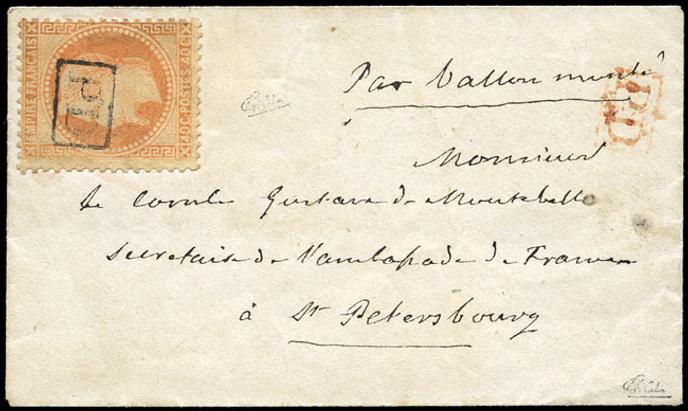 EMPIRE FRANÇAIS
40C. POSTES 40C.
PD
Par Ballon monté
PD
Monsieur
le Comte Gustave de Montebello
secretaire de l'ambassade de France
à St Petersbourg